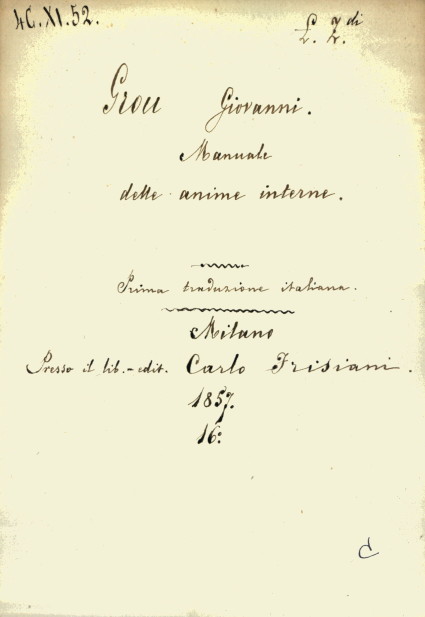 4C.XI.52.
Grou Giovanni.
Manuale
delle anime interne.
Prima traduzione italiana.
Milano
Presso il lib.-edit. Carlo Frisiani.
1857.
16º
C